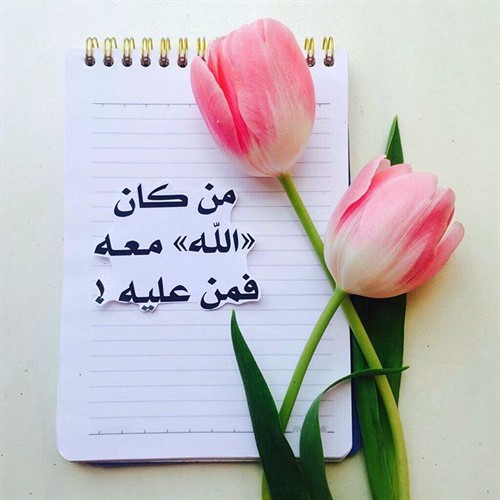 من كان
«الله» معه
فمن عليه !